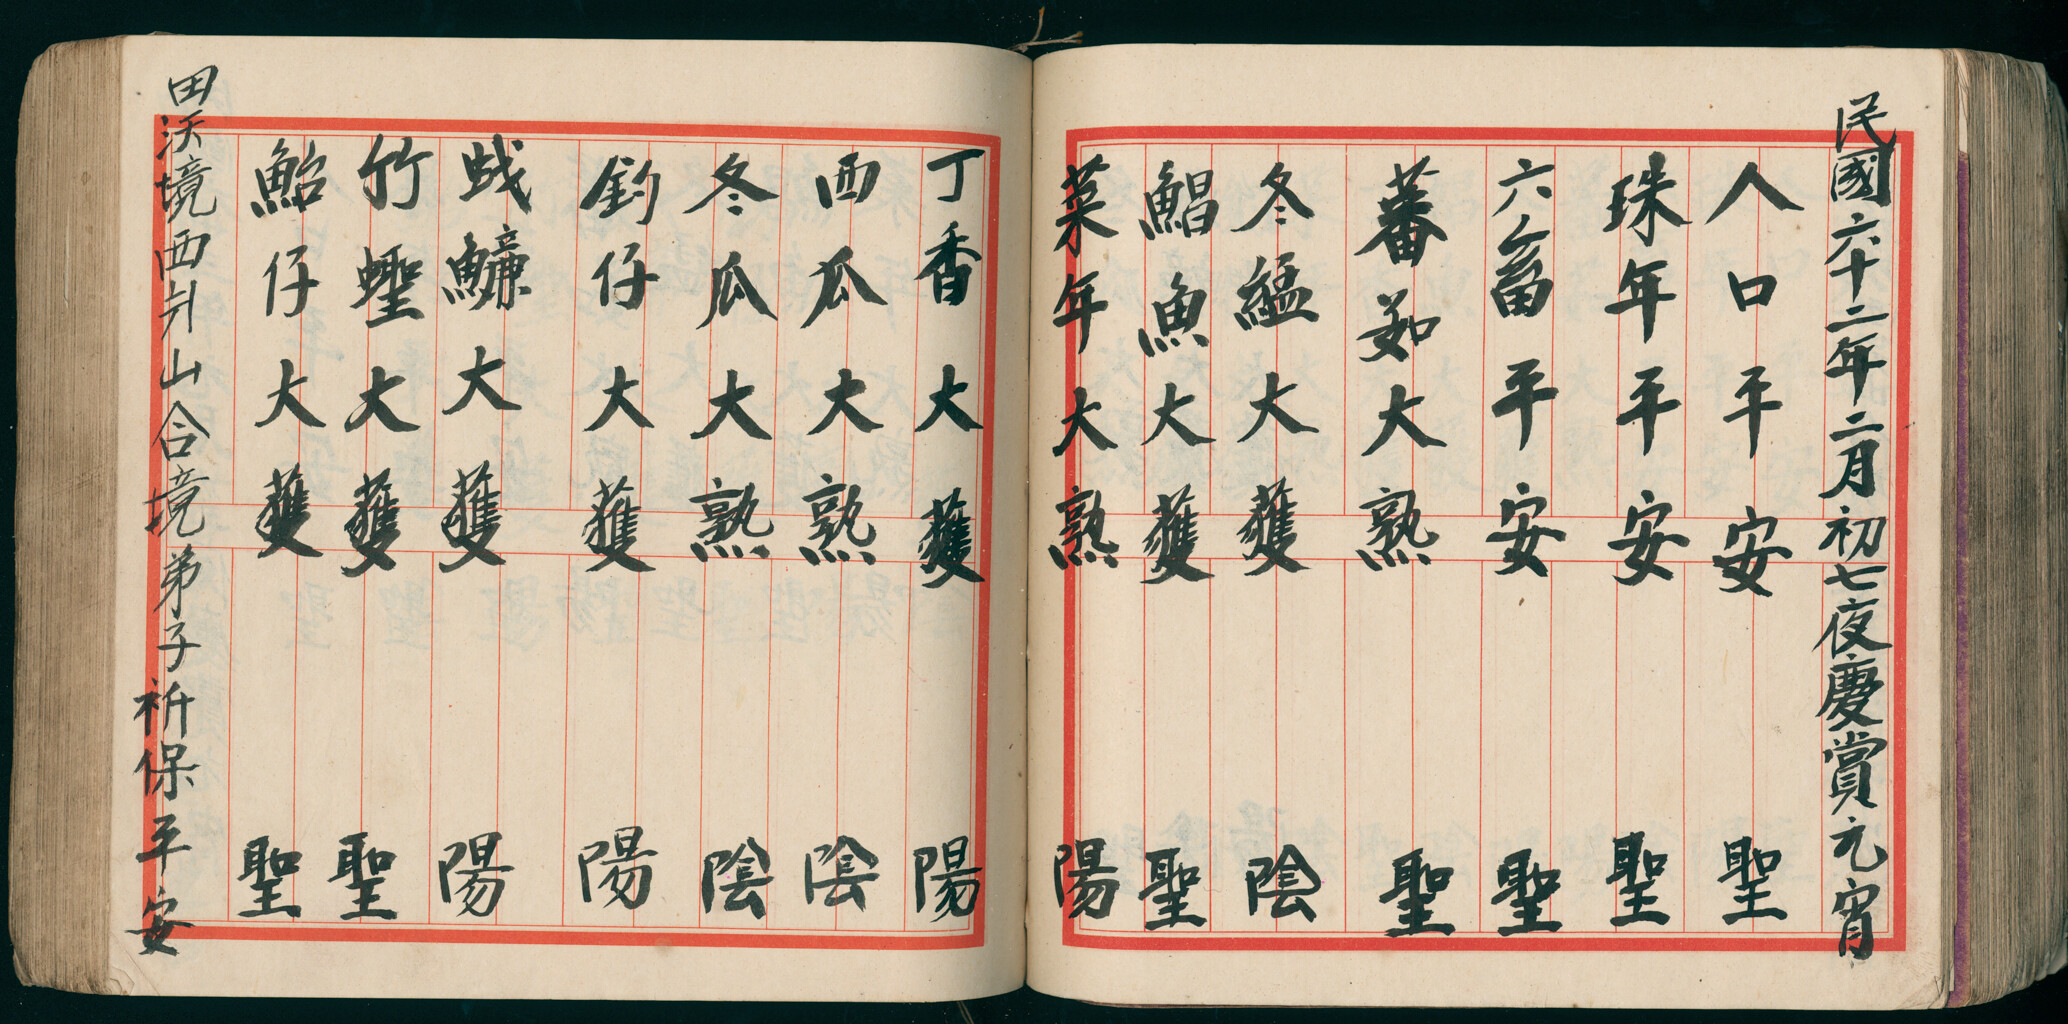 民國六十二年二月初七夜慶賞元宵
人口平安 聖
珠年平安 聖
六畜平安 聖
蕃茹大熟 聖
冬䱋大獲 陰
鯧魚大獲 聖
菜年大熟 陽
丁香大獲 陽
西瓜大熟 陰
冬瓜大熟 陰
釣仔大獲 陽
大獲 陽
竹蟶大獲 聖
鮐仔大獲 聖
田沃境西井山合境弟子祈保平安